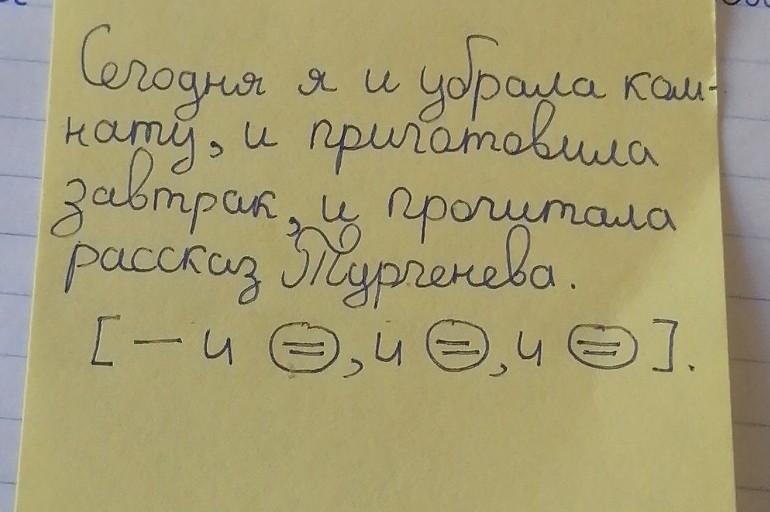 Сегодня я и убрала ком-
нату, и приготовила
завтрак, и прочитала
рассказ Тургенева.
[— и (=), и (=), и (=)].